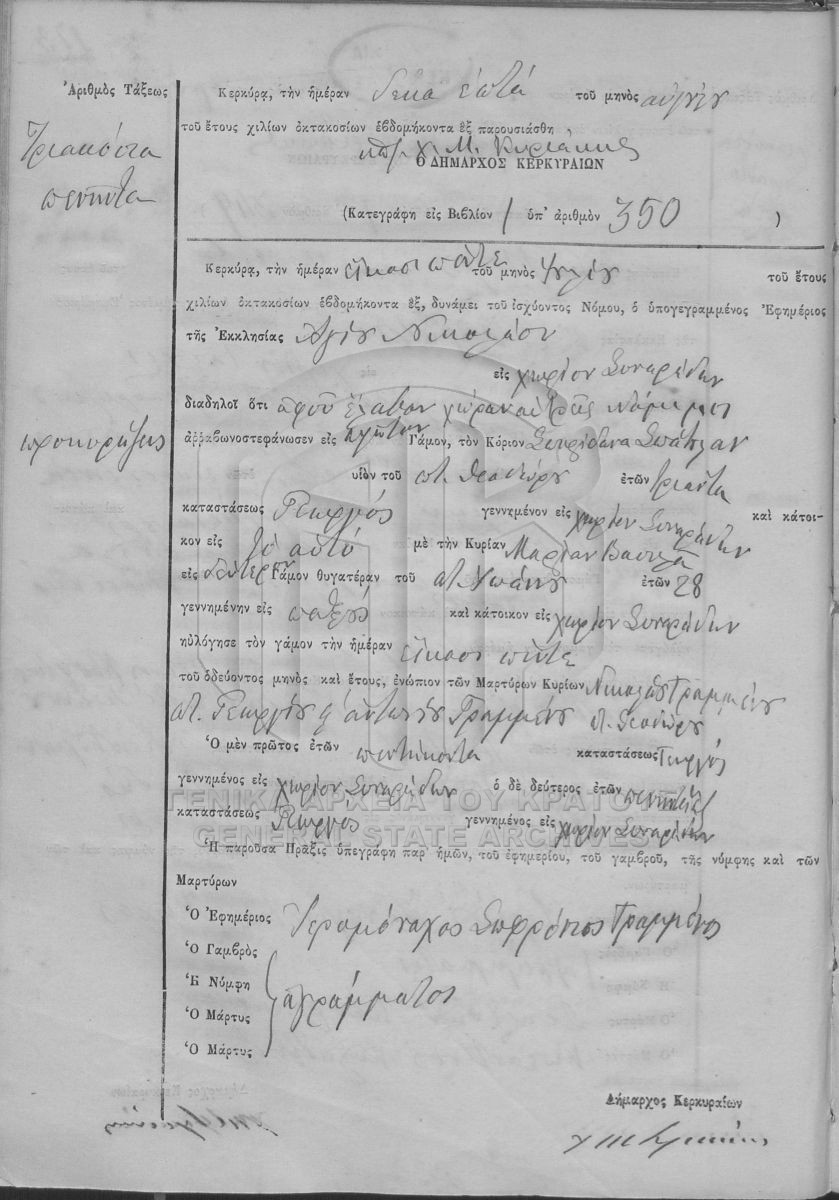 Ἀριθμὸς Τάξεως
Τριακόσια
πενῆντα
Κερκύρᾳ, τὴν ἡμέραν δέκα ἑπτά τοῦ μηνὸς αὐγούστου
τοῦ ἔτους χιλίων ὀκτακοσίων ἑβδομήκοντα ἓξ παρουσιάσθη
Ὁ ΔΗΜΑΡΧΟΣ ΚΕΡΚΥΡΑΙΩΝ
(Κατεγράφη εἰς Βιβλίον / ὑπ' ἀριθμὸν 350 )
Κερκύρᾳ, τὴν ἡμέραν εἴκοσι πέντε τοῦ μηνὸς Ἰουλίου τοῦ ἔτους
χιλίων ὀκτακοσίων ἑβδομήκοντα ἓξ, δυνάμει τοῦ ἰσχύοντος Νόμου, ὁ ὑπογεγραμμένος Ἐφημέριος
τῆς Ἐκκλησίας Ἁγίου Νικολάου
εἰς χωρίον Συναράδων
διαδηλοῖ ὅτι ἀφοῦ ἔλαβον χώραν αἱ τρεῖς νόμιμοι
προκηρύξεις
ἀῤῥαβωνοστεφάνωσεν εἰς πρῶτον Γάμον, τὸν Κύριον Σπυρίδωνα
υἱὸν τοῦ ποτ. Θεοδώρου ἐτῶν τριάντα
καταστάσεως Γεωργός γεννημένον εἰς χωρίον Συναράδων καὶ κάτοι-
κον εἰς τὸ αὐτό μὲ τὴν Κυρίαν Μαρίαν
εἰς δεύτερον Γάμον θυγατέραν τοῦ ποτ. Ἰωάννου ἐτῶν 28
γεννημένην εἰς καὶ κάτοικον εἰς χωρίον Συναράδων
ηὐλόγησε τὸν γάμον τὴν ἡμέραν εἴκοσι πέντε
τοῦ ὁδεύοντος μηνὸς καὶ ἔτους, ἐνώπιον τῶν Μαρτύρων Κυρίων Νικολάου Γραμμένου
ποτ. Γεωργίου & Ἀντωνίου Γραμμένου ποτ. Θεοδώρου
Ὁ μὲν πρῶτος ἐτῶν πεντήκοντα καταστάσεως Γεωργός
γεννημένος εἰς χωρίον Συναράδων ὁ δὲ δεύτερος ἐτῶν
καταστάσεως Γεωργός γεννημένος εἰς χωρίον Συναράδων
ΓΕΝΙΚΑ ΑΡΧΕΙΑ ΤΟΥ ΚΡΑΤΟΥΣ
GENERAL STATE ARCHIVES
Ἡ παροῦσα Πρᾶξις ὑπεγράφη παρ' ἡμῶν, τοῦ ἐφημερίου, τοῦ γαμβροῦ, τῆς νύμφης καὶ τῶν
Μαρτύρων
Ὁ Ἐφημέριος Ἱερομόναχος Σωφρόνιος Γραμμένος
Ὁ Γαμβρὸς
Ἡ Νύμφη
ἀγράμματος
Ὁ Μάρτυς
Ὁ Μάρτυς
Δήμαρχος Κερκυραίων